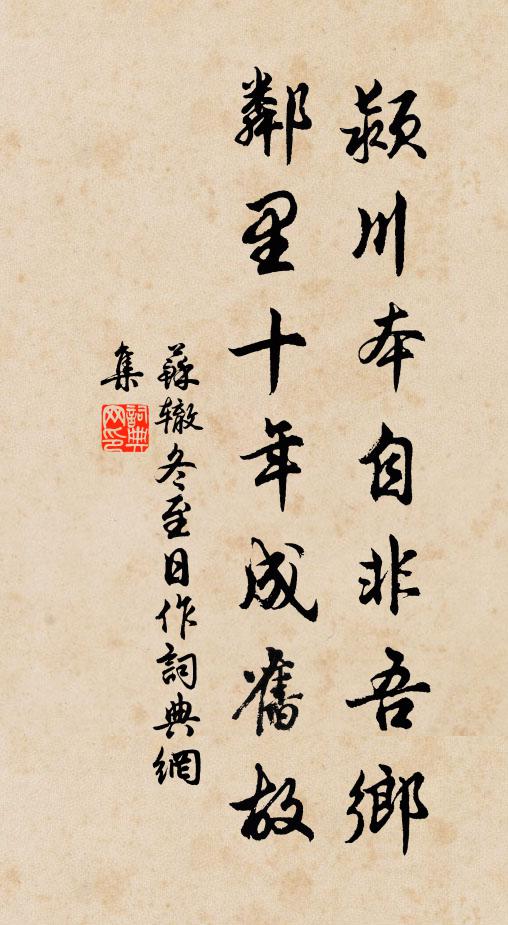 颍川本自非吾鄉
鄰里十年成舊故
蘇辙冬至日作詞典網
集
詞典网印